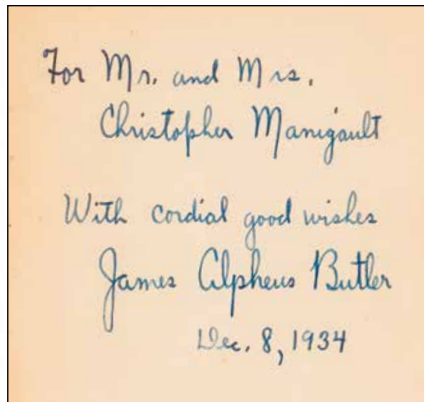 For Mr. and Mrs.
Christopher Manigault
With cordial good wishes
James Alpheus Butler
Dec. 8, 1934